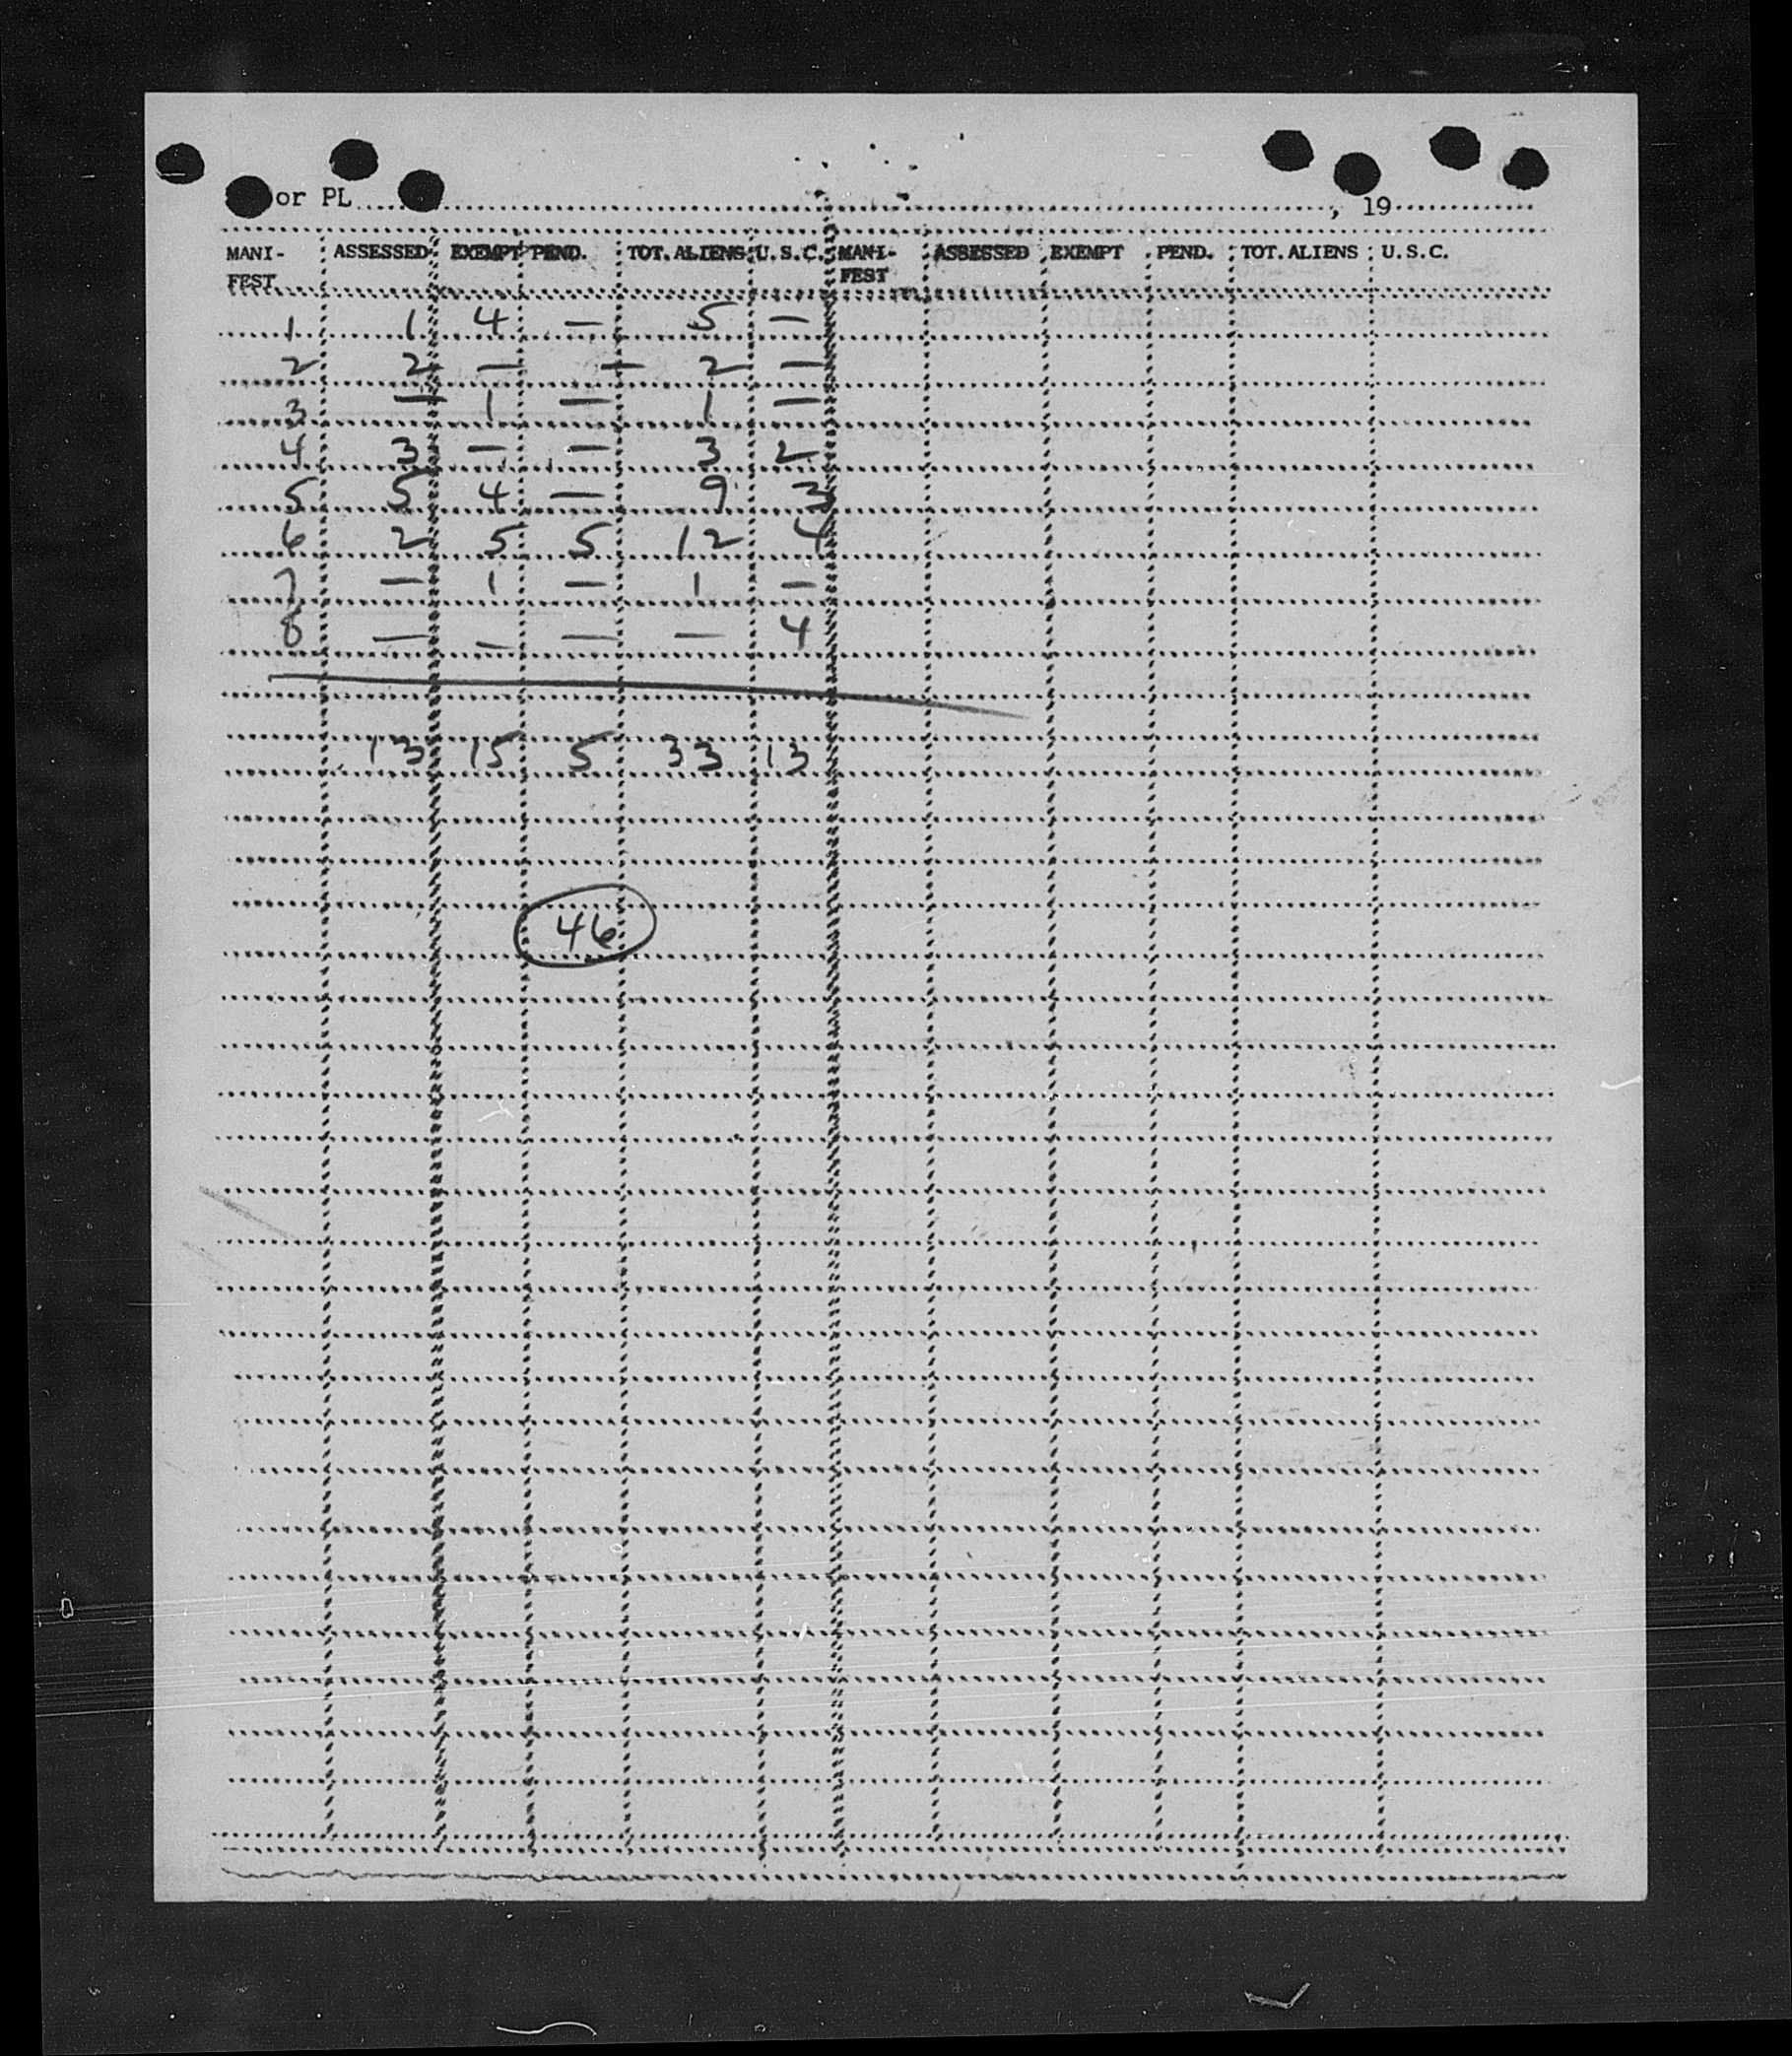 or PL , 19
MANI-FEST ASSESSED EXEMPT PEND. TOT. ALIENS U.S.C. MANI-FEST ASSESSED EXEMPT PEND. TOT. ALIENS U.S.C.
1 1 4 — 5 —
2 2 — — 2 —
3 — 1 — 1 —
4 3 — — 3 2
5 5 4 — 9 3
6 2 5 5 12 4
7 — 1 — 1 —
8 — — — — 4
13 15 5 33 13
46